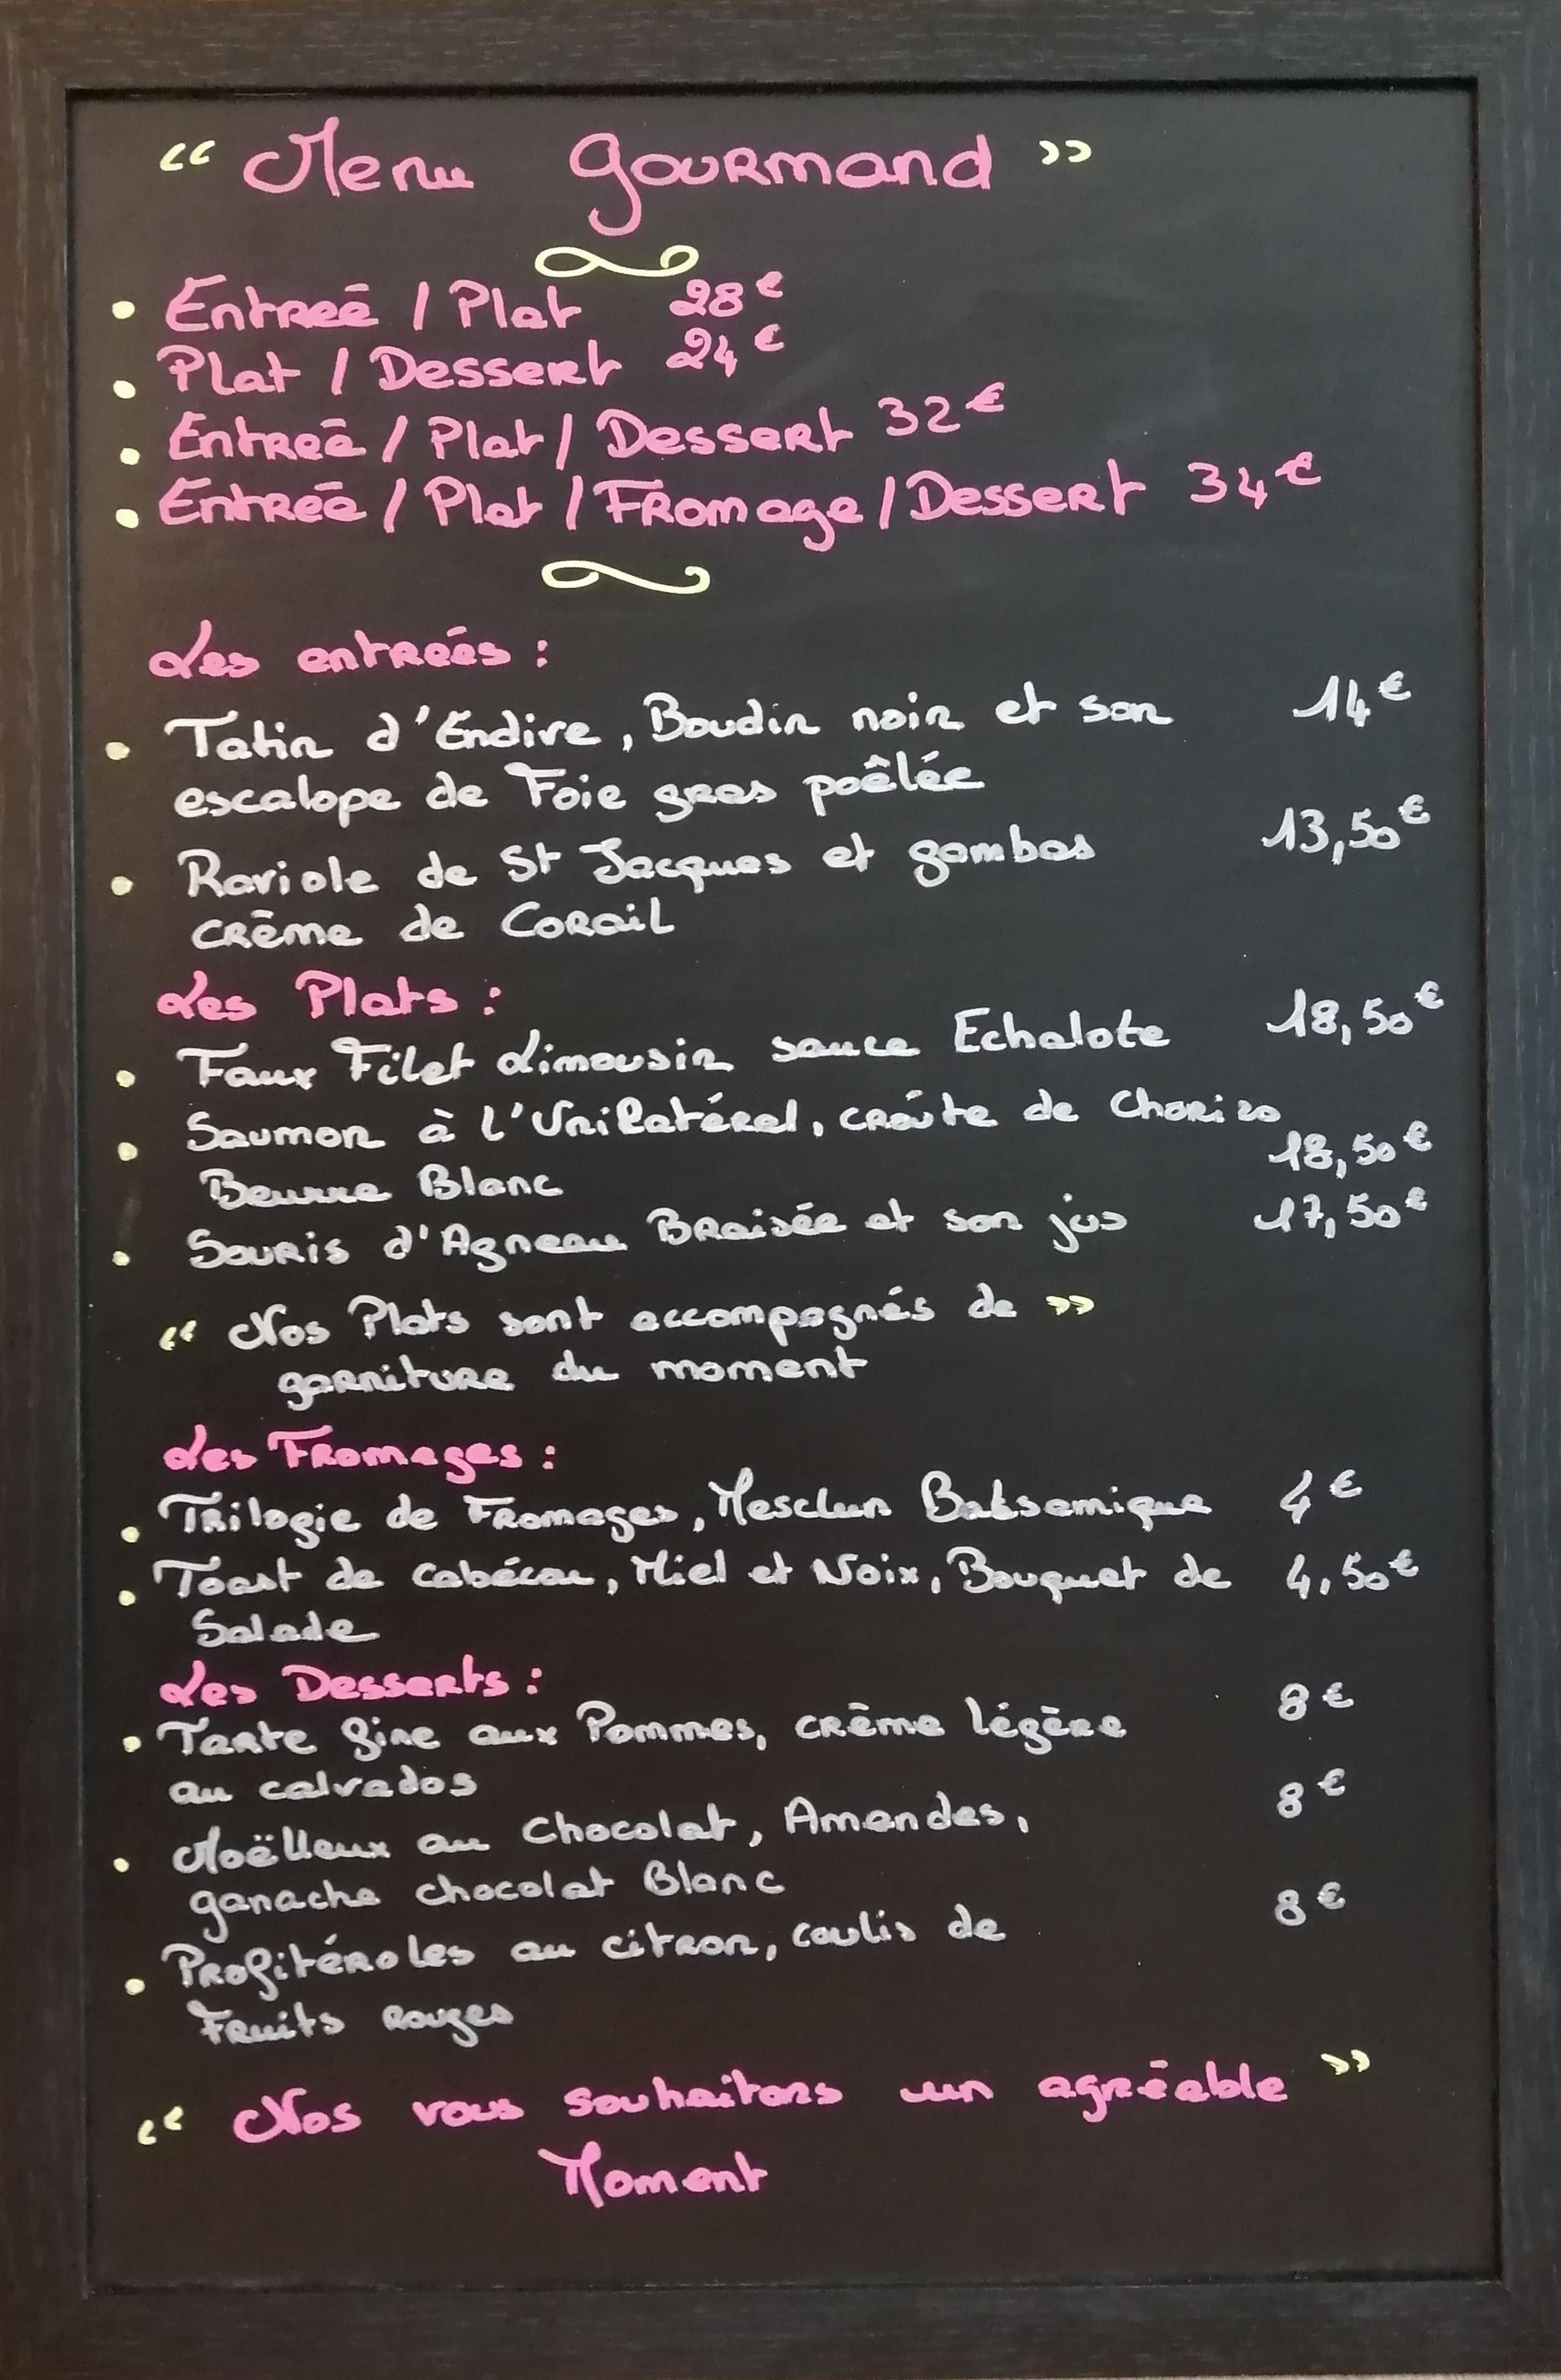 “ Menu gourmand ”
• Entreé / Plat 28€
• Plat / Dessert 24€
• Entreé / Plat / Dessert 32€
• Entreé / Plat / Fromage / Dessert 34€
Les entreés :
• Tatin d'Endive, Boudin noir et son 14€
escalope de Foie gras poêlée
• Raviole de St Jacques et gambas 13,50€
crème de Corail
Les Plats :
• Faux Filet Limousin sauce Echalote 18,50€
• Saumon à l'Unilatéral, croûte de Chorizo
Beurre Blanc 18,50€
• Souris d'Agneau Braisée et son jus 17,50€
“ Nos Plats sont accompagnés de ”
garniture du moment
Les Fromages :
• Trilogie de Fromages, Mesclun Balsamique 4€
• Toast de Cabécou, Miel et Noix, Bouquet de 4,50€
Salade
Les Desserts :
• Tarte fine aux Pommes, crème légère 8€
au calvados
• Moëlleux au Chocolat, Amandes, 8€
ganache chocolat Blanc
• Profitéroles au citron, coulis de 8€
Fruits Rouges
“ Nos vous souhaitons un agréable ”
Moment